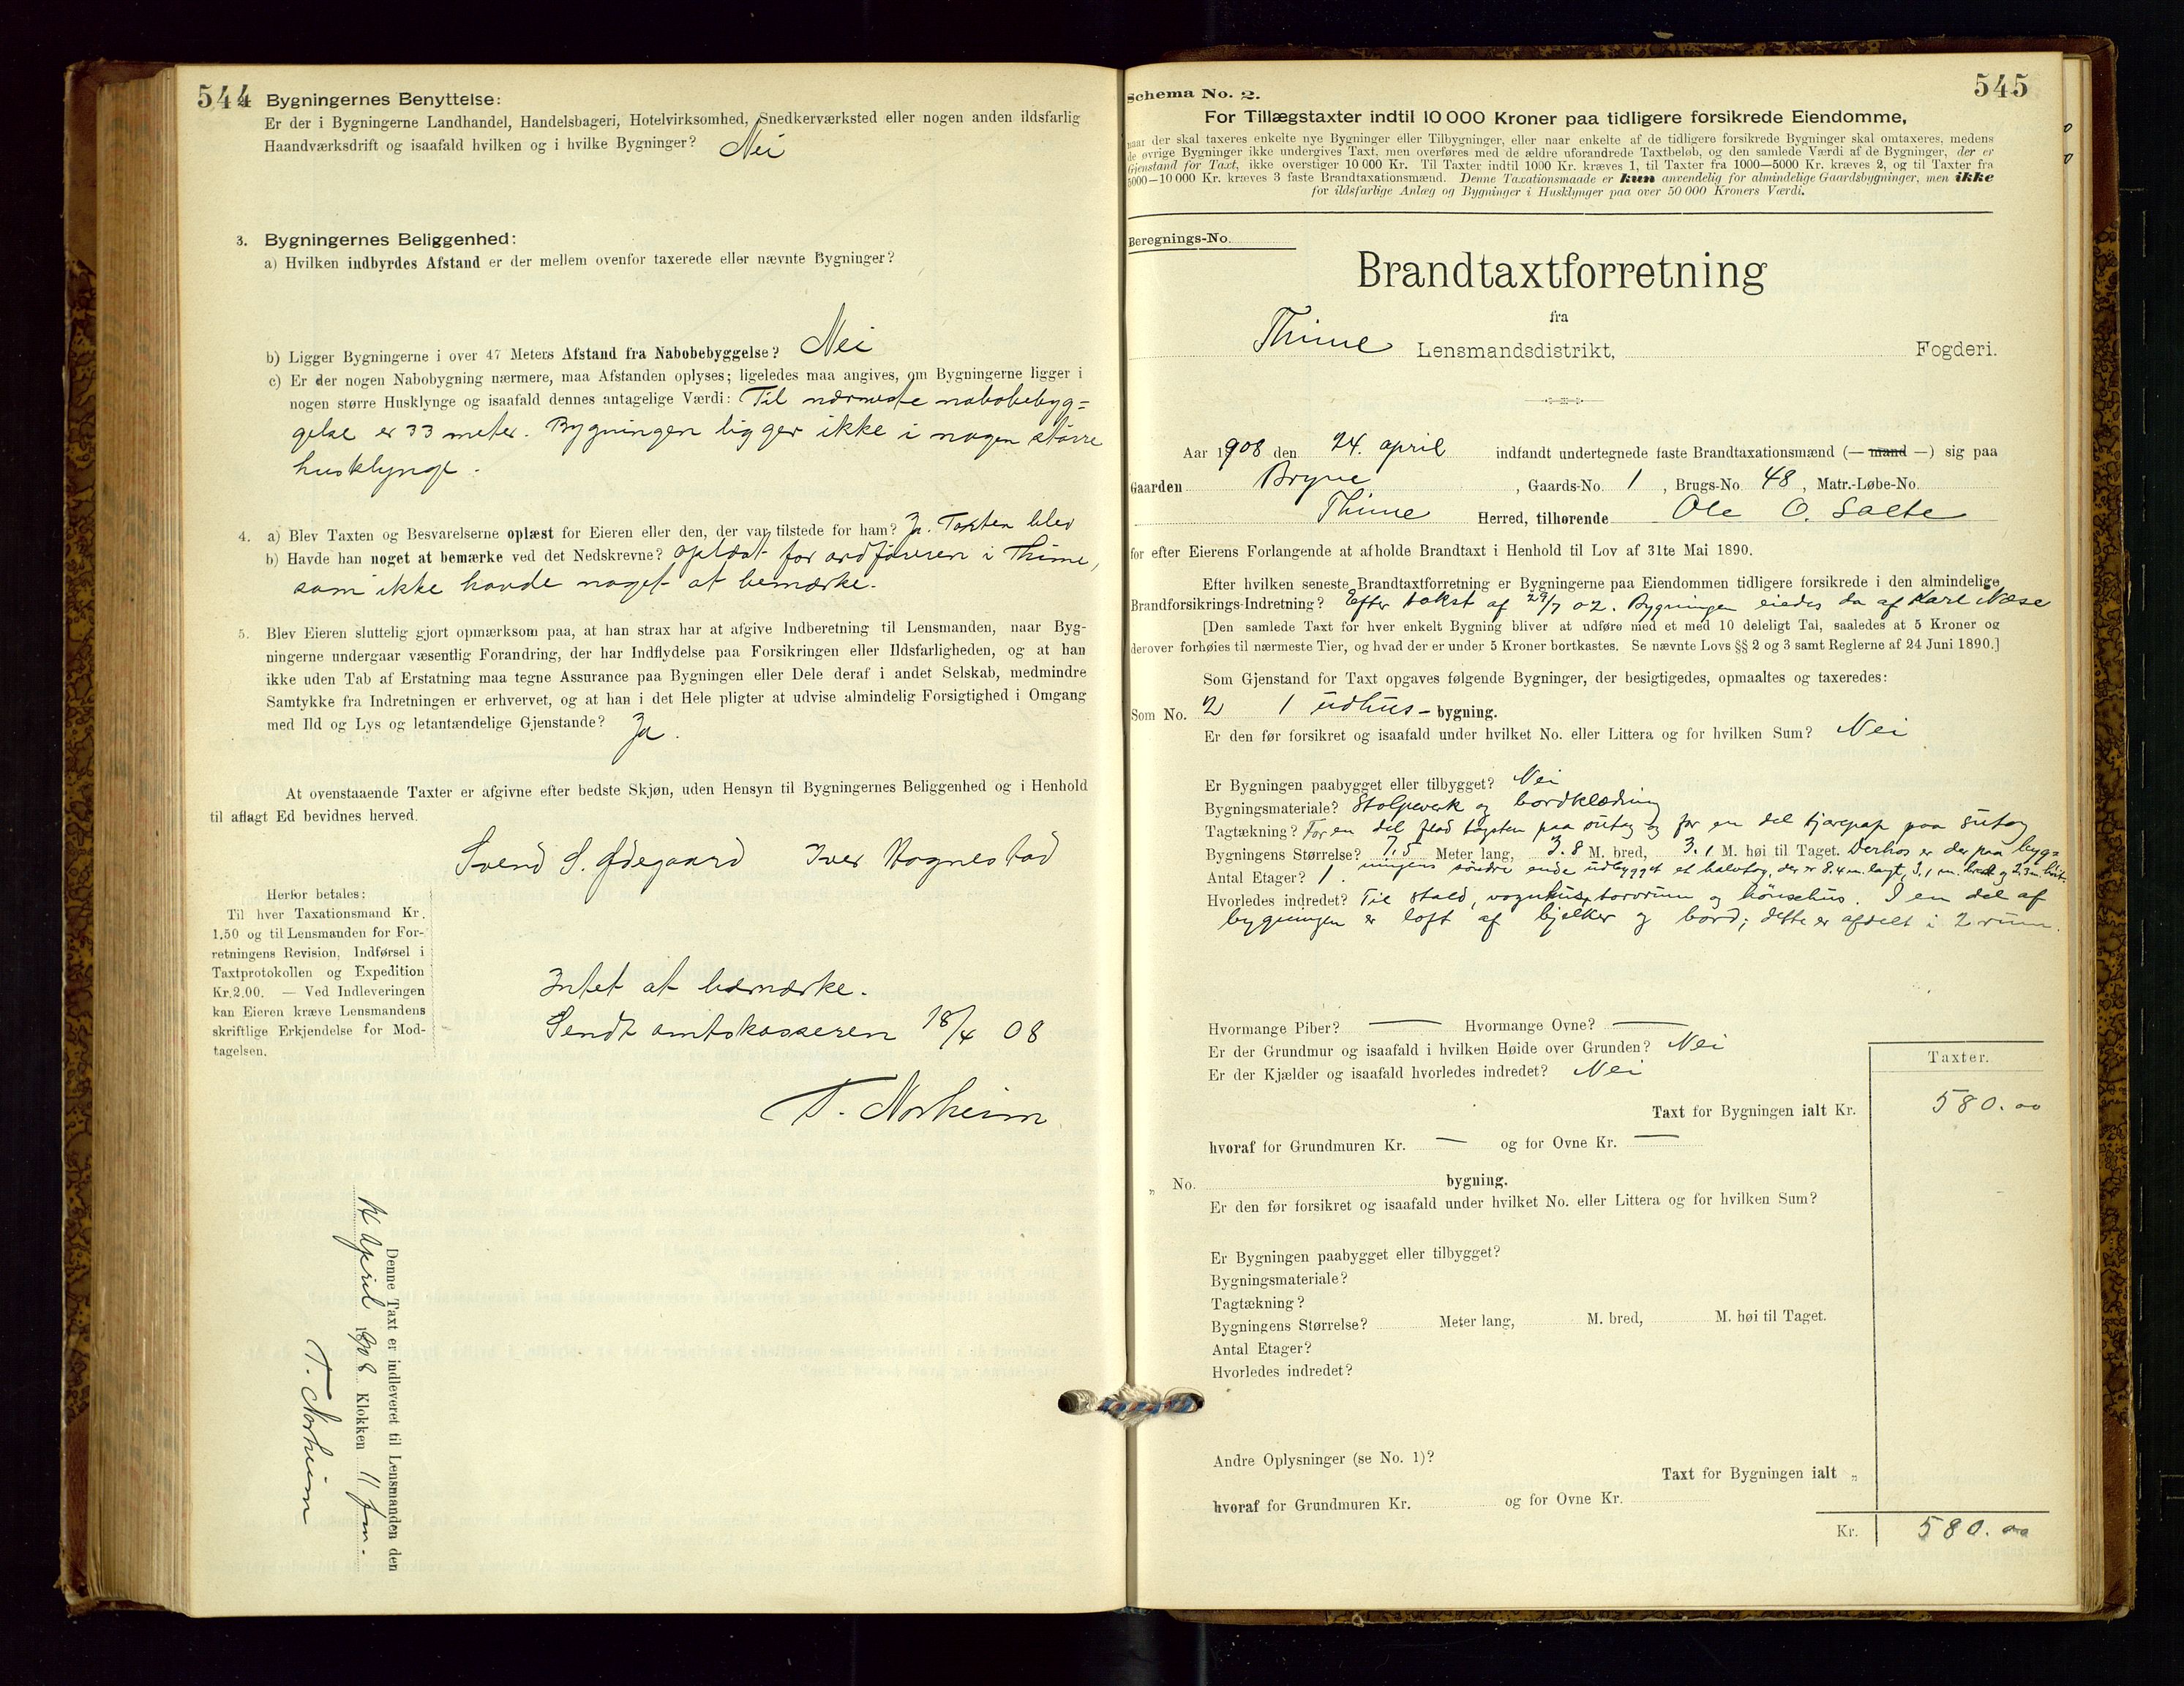 544 Bygningernes Benyttelse:
Er der i Bygningerne Landhandel, Handelsbageri, Hotelvirksomhed, Snedkerværksted eller nogen anden ildsfarlig
Haandværksdrift og isaafald hvilken og i hvilke Bygninger? Nei
3. Bygningernes Beliggenhed:
a) Hvilken indbyrdes Afstand er der mellem ovenfor taxerede eller nævnte Bygninger?
b) Ligger Bygningerne i over 47 Meters Afstand fra Nabobebyggelse? Nei
c) Er der nogen Nabobygning nærmere, maa Afstanden oplyses; ligeledes maa angives, om Bygningerne ligger i
nogen større Husklynge og isaafald dennes antagelige Værdi: Til nærmeste nabobebyg=
gelse er 33 meter. Bygningen ligger ikke i nogen større
husklynge.
4. a) Blev Taxten og Besvarelserne oplæst for Eieren eller den, der var tilstede for ham? Ja. Taxten blev
b) Havde han noget at bemærke ved det Nedskrevne? oplæst for ordføreren i Thime,
som ikke havde noget at bemærke.
5. Blev Eieren sluttelig gjort opmærksom paa, at han strax har at afgive Indberetning til Lensmanden, naar Byg-
ningerne undergaar væsentlig Forandring, der har Indflydelse paa Forsikringen eller Ildsfarligheden, og at han
ikke uden Tab af Erstatning maa tegne Assurance paa Bygningen eller Dele deraf i andet Selskab, medmindre
Samtykke fra Indretningen er erhvervet, og at han i det Hele pligter at udvise almindelig Forsigtighed i Omgang
med Ild og Lys og letantændelige Gjenstande? Ja.
At ovenstaaende Taxter er afgivne efter bedste Skjøn, uden Hensyn til Bygningernes Beliggenhed og i Henhold
til aflagt Ed bevidnes herved.
Svend S. Ødegaard Iver Hognestad
Herfor betales:
Til hver Taxationsmand Kr.
1.50 og til Lensmanden for For-
retningens Revision, Indførsel i
Taxtprotokollen og Expedition
Kr. 2.00. — Ved Indleveringen
kan Eieren kræve Lensmandens
skriftlige Erkjendelse for Mod-
tagelsen.
Intet at bemærke.
Sendt amtskasseren 18/4 08
T. Norheim
Denne Taxt er indleveret til Lensmanden den
April 1908 Klokken 11 fm.
T. Norheim
545
Schema No. 2.
For Tillægstaxter indtil 10 000 Kroner paa tidligere forsikrede Eiendomme,
naar der skal taxeres enkelte nye Bygninger eller Tilbygninger, eller naar enkelte af de tidligere forsikrede Bygninger skal omtaxeres, medens
de øvrige Bygninger ikke undergives Taxt, men overføres med de ældre uforandrede Taxtbeløb, og den samlede Værdi af de Bygninger, der er
Gjenstand for Taxt, ikke overstiger 10 000 Kr. Til Taxter indtil 1000 Kr. kræves 1, til Taxter fra 1000—5000 Kr. kræves 2, og til Taxter fra
5000—10 000 Kr. kræves 3 faste Brandtaxationsmænd. Denne Taxationsmaade er kun anvendelig for almindelige Gaardsbygninger, men ikke
for ildsfarlige Anlæg og Bygninger i Husklynger paa over 50 000 Kroners Værdi.
Beregnings-No.
Brandtaxtforretning
fra
Thime Lensmandsdistrikt, Fogderi.
Aar 1908 den 24. april indfandt undertegnede faste Brandtaxationsmænd (— mand —) sig paa
Gaarden Bryne, Gaards-No. 1, Brugs-No. 48, Matr.-Løbe-No.
Thime Herred, tilhørende Ole O. Salte
for efter Eierens Forlangende at afholde Brandtaxt i Henhold til Lov af 31te Mai 1890.
Efter hvilken seneste Brandtaxtforretning er Bygningerne paa Eiendommen tidligere forsikrede i den almindelige
Brandforsikrings-Indretning? Efter takst af 29/7 02. Bygningen eiedes da af Karl Næse
[Den samlede Taxt for hver enkelt Bygning bliver at udføre med et med 10 deleligt Tal, saaledes at 5 Kroner og
derover forhøies til nærmeste Tier, og hvad der er under 5 Kroner bortkastes. Se nævnte Lovs §§ 2 og 3 samt Reglerne af 24 Juni 1890.]
Som Gjenstand for Taxt opgaves følgende Bygninger, der besigtigedes, opmaaltes og taxeredes:
Som No. 2 1 udhus-bygning.
Er den før forsikret og isaafald under hvilket No. eller Littera og for hvilken Sum? Nei
Er Bygningen paabygget eller tilbygget? Nei
Bygningsmateriale? Stolpeverk og bordklædning
Tagtækning? For en del flad tagsten paa sutag og for en del tjærepap paa sutag
Bygningens Størrelse? 7.5 Meter lang, 3.8 M. bred, 3.1 M. høi til Taget. Derhos er der paa byg=
Antal Etager? 1. ningens søndre ende udbygget et halvtag, der er 8.4 m. langt, 3.1 m. bredt og 2.3 m. høit.
Hvorledes indredet? Til stald, vognhus, torvrum og hønsehus. I en del af
bygningen er loft af bjelker og bord; dette er afdelt i 2 rum.
Hvormange Piber? — Hvormange Ovne? —
Er der Grundmur og isaafald i hvilken Høide over Grunden? Nei
Er der Kjælder og isaafald hvorledes indredet? Nei
Taxter.
Taxt for Bygningen ialt Kr. 580.00
hvoraf for Grundmuren Kr. — og for Ovne Kr. —
„ No. bygning.
Er den før forsikret og isaafald under hvilket No. eller Littera og for hvilken Sum?
Er Bygningen paabygget eller tilbygget?
Bygningsmateriale?
Tagtækning?
Bygningens Størrelse? Meter lang, M. bred, M. høi til Taget.
Antal Etager?
Hvorledes indredet?
Andre Oplysninger (se No. 1)?
Taxt for Bygningen ialt „
hvoraf for Grundmuren Kr. og for Ovne Kr.
Kr. 580.00